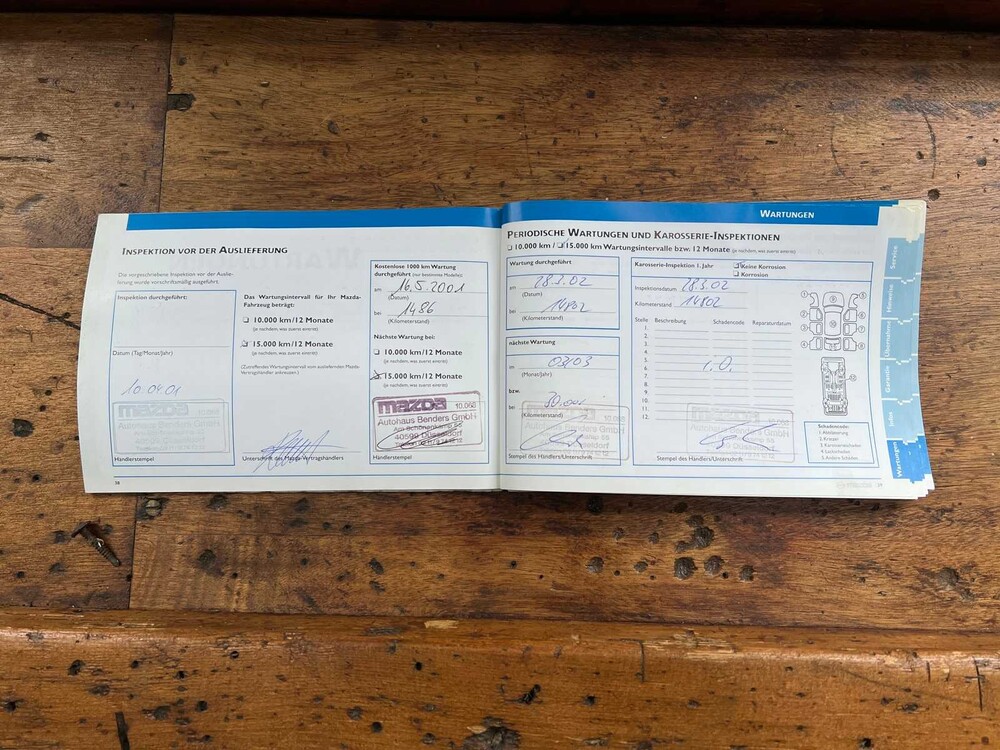 INSPEKTION VOR DER AUSLIEFERUNG
Die vorgeschriebene Inspektion vor der Auslie-
ferung wurde vorschriftsmäßig ausgeführt.
Inspektion durchgeführt:
Datum (Tag/Monat/Jahr)
10.04.01
mazda
Händlerstempel
Das Wartungsintervall für Ihr Mazda-
Fahrzeug beträgt:
10.000 km/12 Monate
(je nachdem, was zuerst eintritt)
15.000 km/12 Monate
(je nachdem, was zuerst eintritt)
(Zutreffendes Wartungsintervall vom ausliefernden Mazda-
Vertragshändler ankreuzen.)
Unterschrift des Mazda-Vertragshändlers
Kostenlose 1000 km Wartung
durchgeführt (nur bestimmte Modelle):
am 16.5.2001
(Datum)
bei 1486
(Kilometerstand)
Nächste Wartung bei:
10.000 km/12 Monate
(je nachdem, was zuerst eintritt)
15.000 km/12 Monate
(je nachdem, was zuerst eintritt)
mazda 10.068
Autohaus Benders GmbH
Am Schönenkamp 55
40599 Düsseldorf
Händlerstempel
38
WARTUNGEN
PERIODISCHE WARTUNGEN UND KAROSSERIE-INSPEKTIONEN
10.000 km / 15.000 km Wartungsintervalle bzw. 12 Monate (je nachdem, was zuerst eintritt)
Wartung durchgeführt
am 28.3.02
(Datum)
bei 14902
(Kilometerstand)
nächste Wartung
am 03/03
(Monat/Jahr)
bzw.
bei 30.000
(Kilometerstand)
Stempel des Händlers/Unterschrift
Karosserie-Inspektion 1. Jahr
Keine Korrosion
Korrosion
Inspektionsdatum 28.3.02
Kilometerstand 14902
Stelle Beschreibung Schadencode Reparaturdatum
1.
2.
3.
4.
5.
6. i.O.
7.
8.
9.
10.
11.
12.
Stempel des Händlers/Unterschrift
Schadencode:
1. Abblätterung
2. Kratzer
3. Karosserieschaden
4. Lackschaden
5. Andere Schäden
Service
Hinweise
Übernahme
Garantie
Infos
Wartungen
39